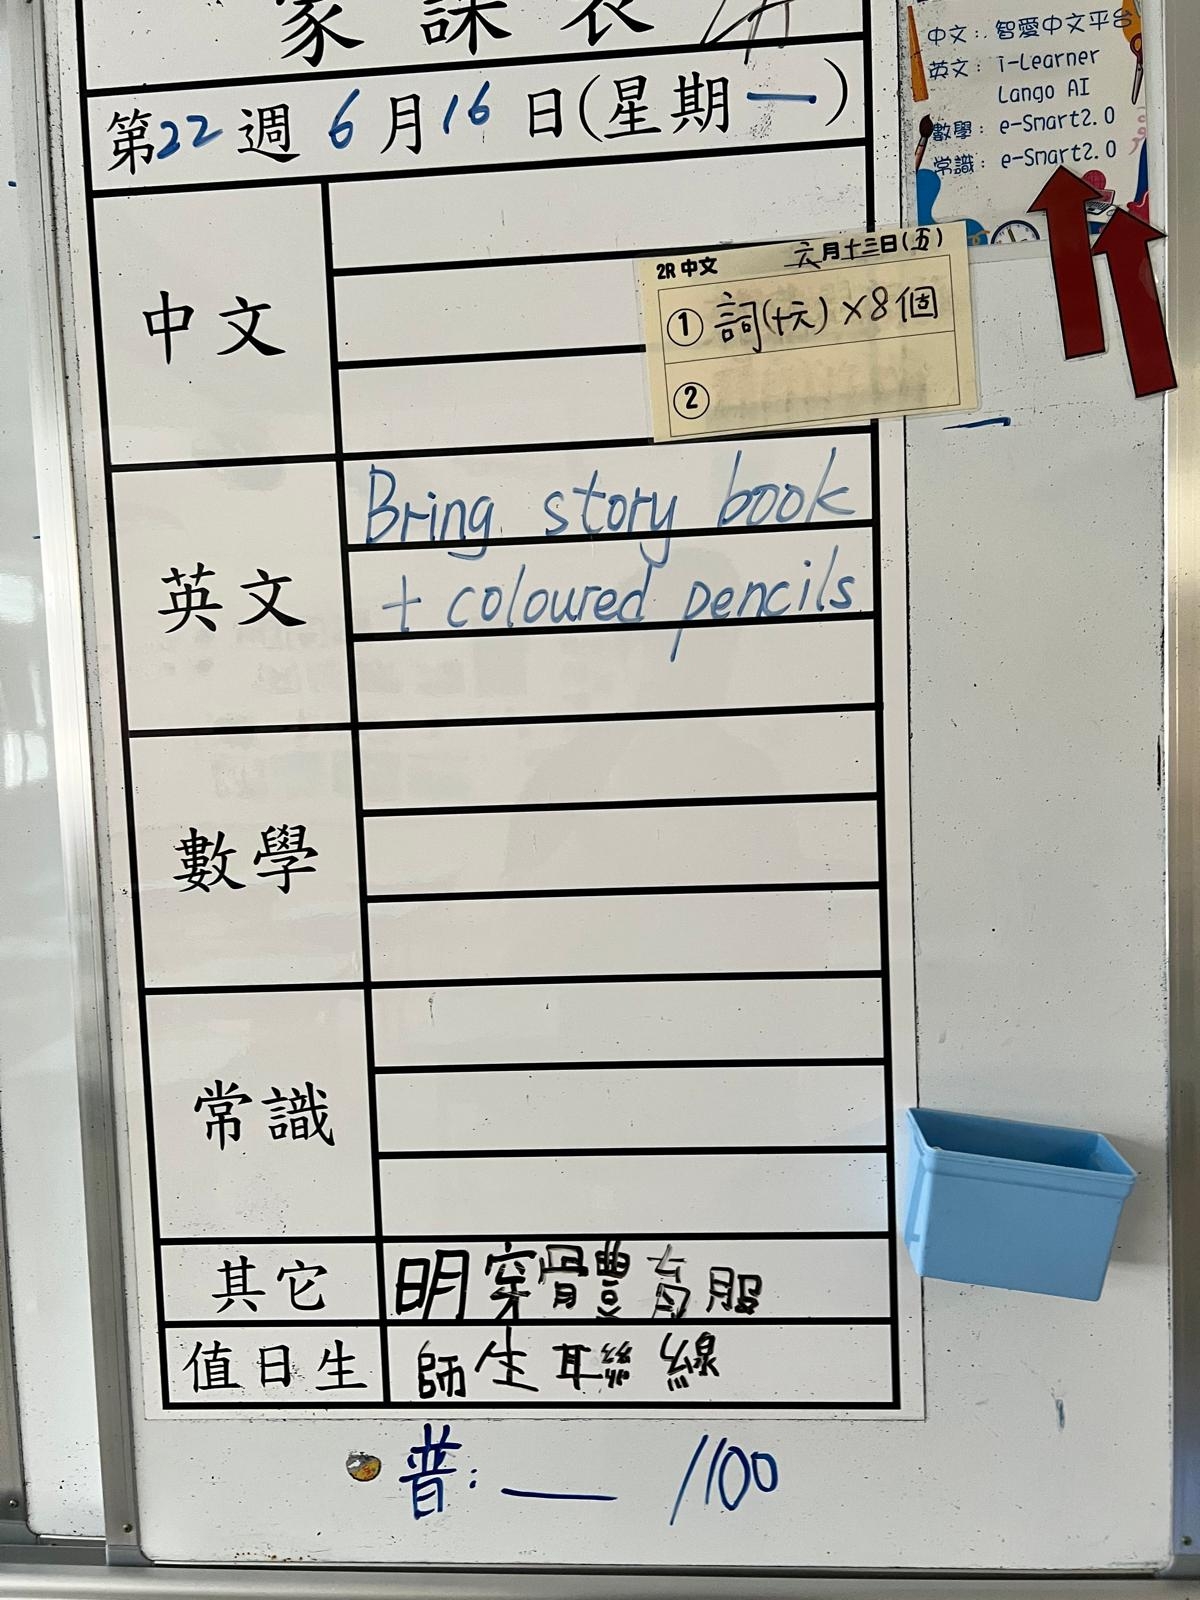 家課表
第22週 6月16日(星期一)
中文：智愛中文平台
英文：i-Learner
Lango AI
數學：e-Smart2.0
常識：e-Smart2.0
中文
2R 中文 六月十三日(五)
① 詞(十六)×8個
②
英文
Bring story book
+ coloured pencils
數學
常識
其它 明穿體育服
值日生 師生聯線
普：＿ /100